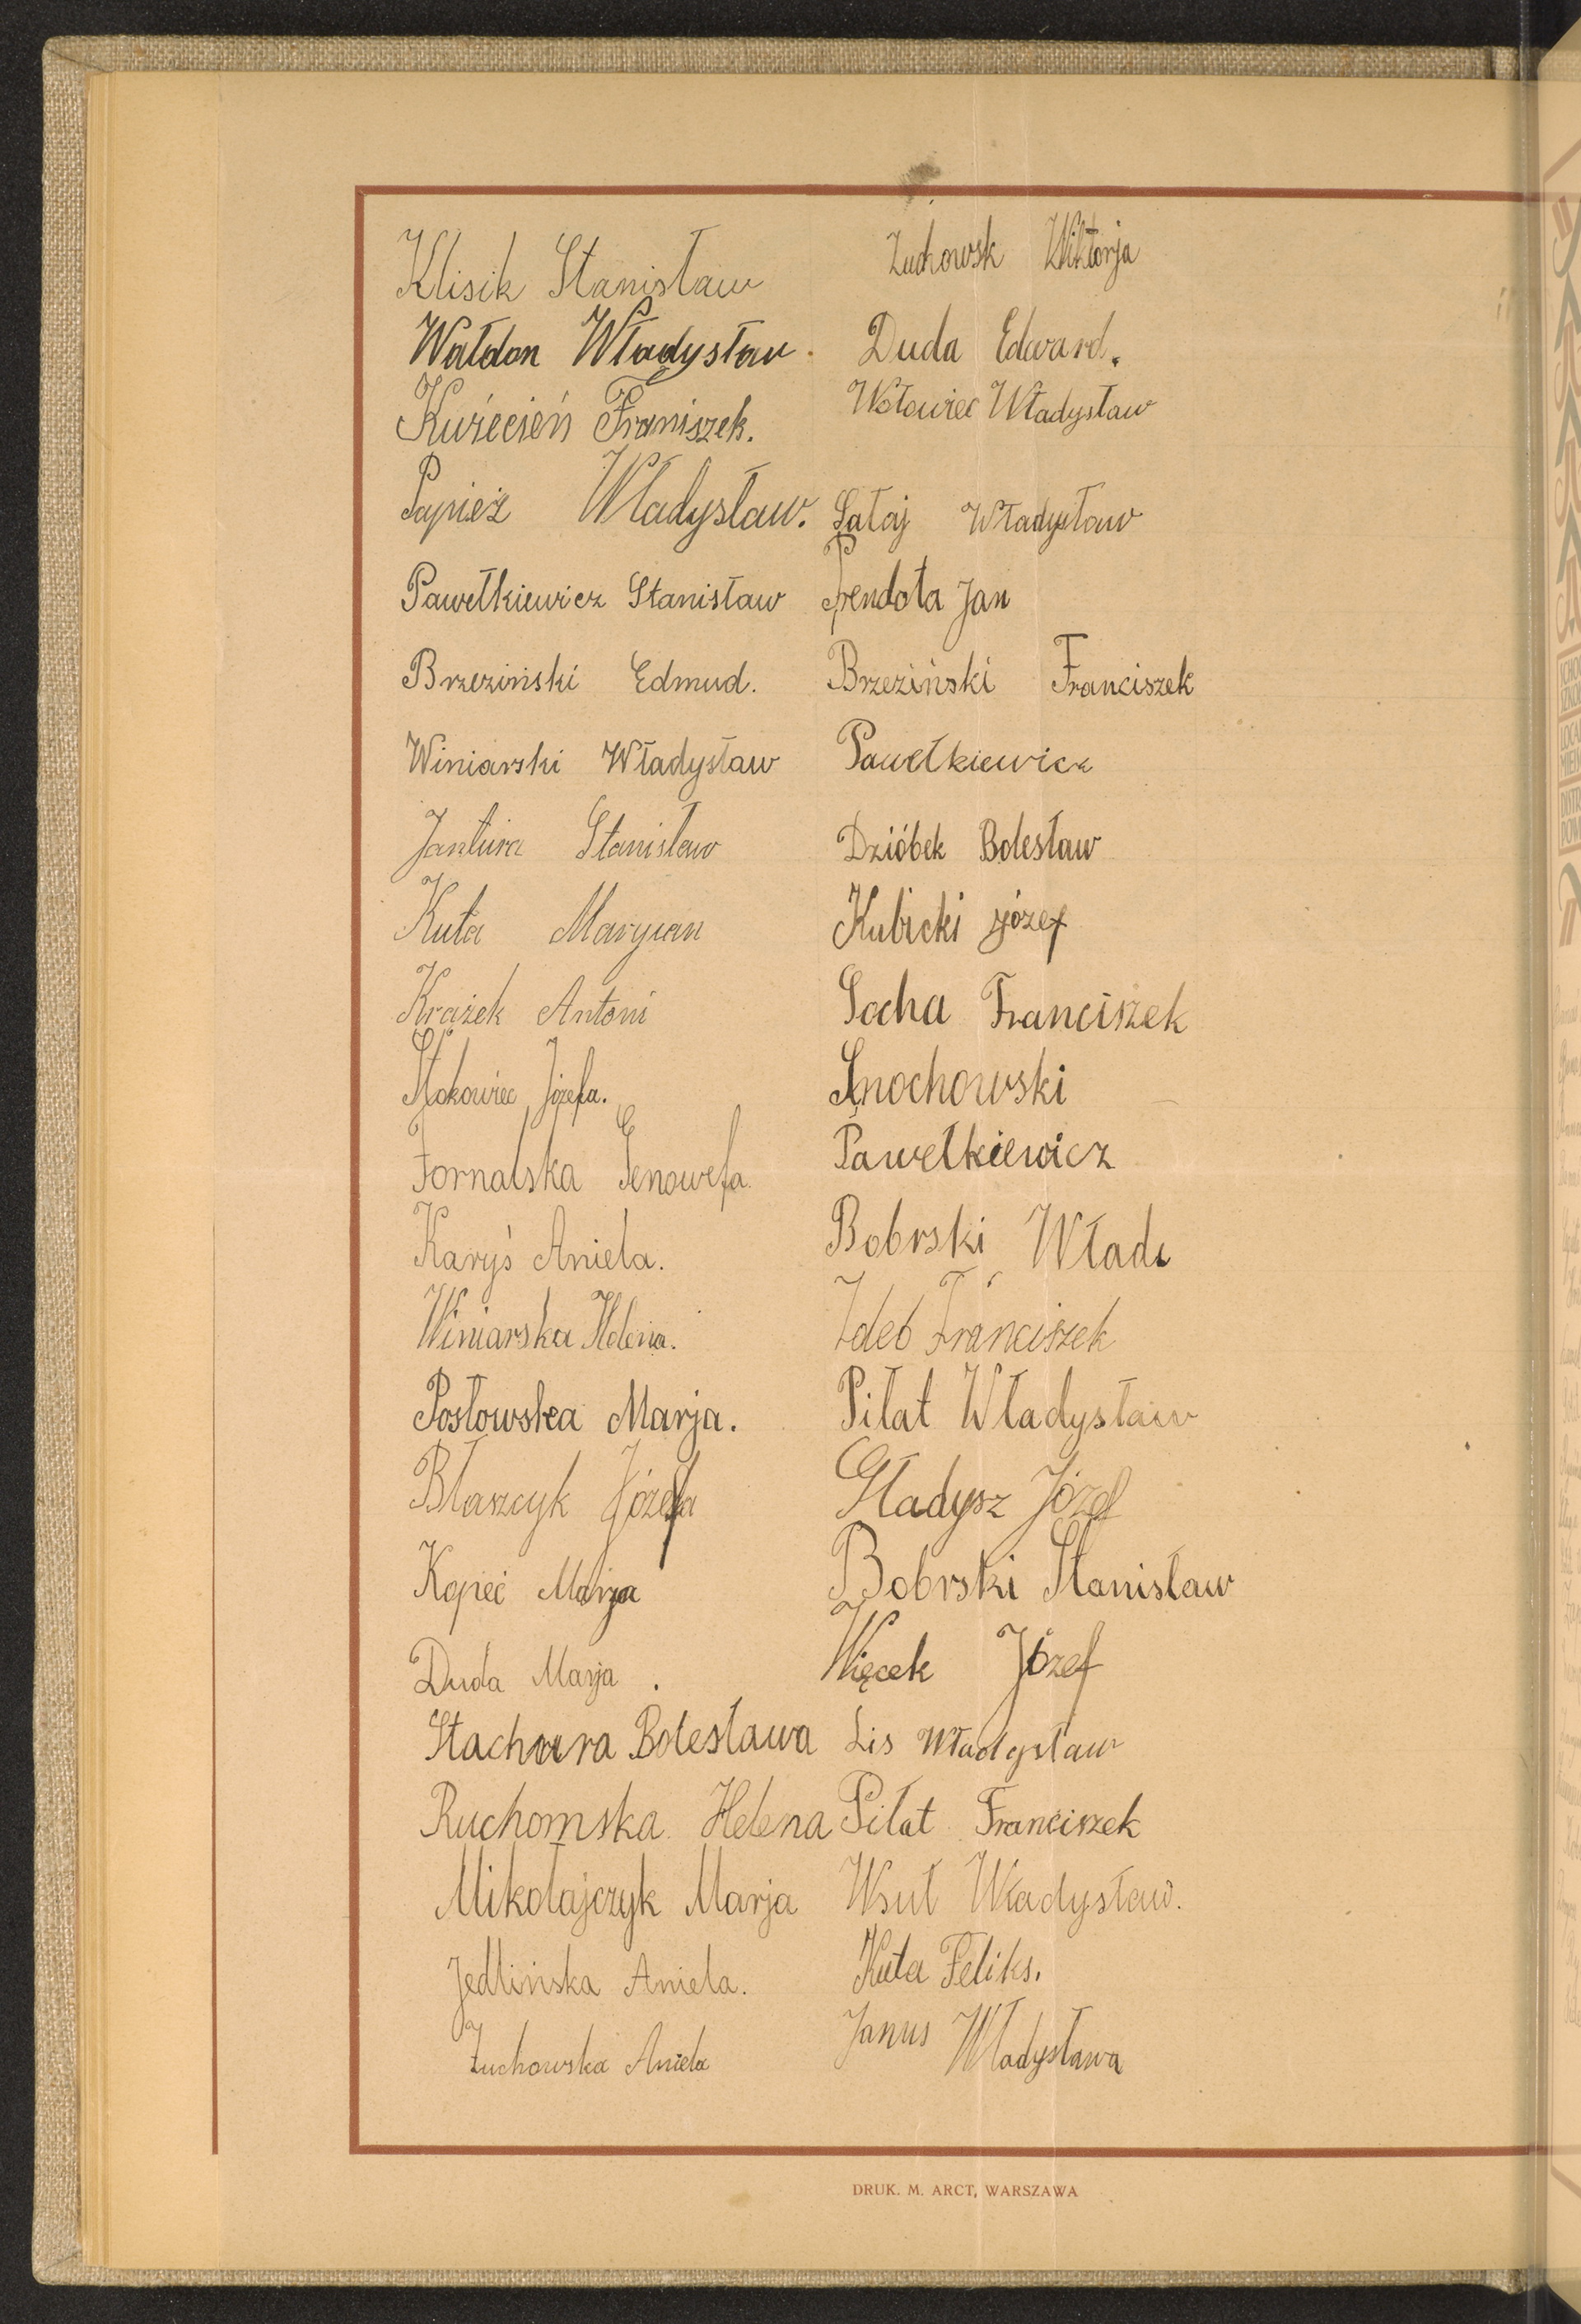 Klisik Stanisław
Wałdon Władysław
Kuźecień Franiszek.
Papież Władysław.
Pawełkiewicz Stanisław
Brzeziński Edmud.
Winiarski Władysław
Jantura Stanisław
Kuta Maryian
Krażek Antoni
Stokowiec Józefa.
Fornalska Genowefa.
Karyś Aniela.
Winiarska Helena.
Posłowska Marja.
Błaszcyk Józefa
Kopeć Marja
Duda Marja.
Stachura Bolesława
Ruchomska Helena
Mikołajczyk Marja
Jedlińska Aniela.
Żuchowska Aniela
Żuchowsk Wiktorja
Duda Edward.
Wołowiec Władysław
Sałaj Władysław
Prendota Jan
Brzeziński Franciszek
Pawełkiewicz
Dzióbek Bolesław
Kubicki Józef
Socha Franciszek
Snochowski
Pawełkiewicz
Bobrski Władi
Zdeb Franciszek
Piłat Władysław
Gładysz Józef
Bobrski Stanisław
Więcek Józef
Lis Władysław
Piłat Franciszek
Wsuł Władysław.
Kuta Feliks.
Janus Władysława
DRUK. M. ARCT, WARSZAWA